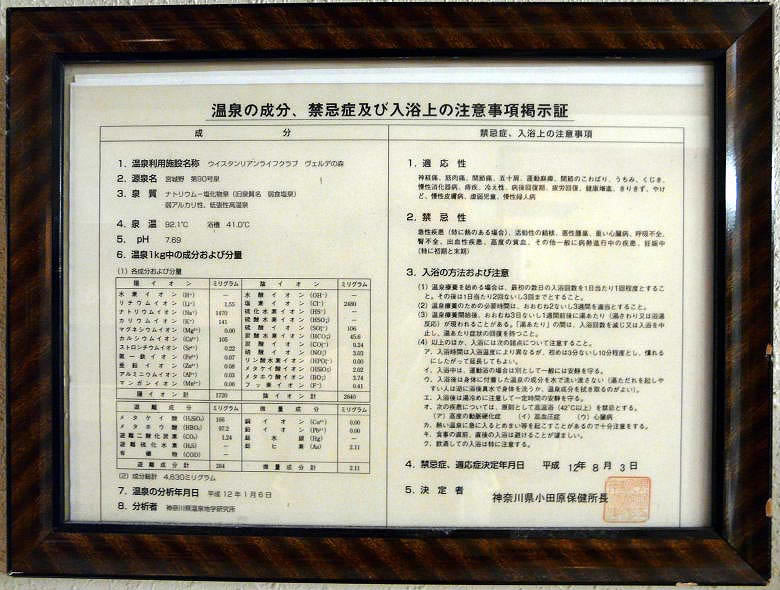 温泉の成分、禁忌症及び入浴上の注意事項掲示証
成 分
1. 温泉利用施設名称 ウイスタンリアンライフクラブ ヴェルデの森
2. 源泉名 宮城野 第90号泉
3. 泉 質 ナトリウム－塩化物泉（旧泉質名 弱食塩泉）
弱アルカリ性、低張性高温泉
4. 泉 温 92.1℃ 浴槽 41.0℃
5. pH 7.69
6. 温泉1kg中の成分および分量
(1) 各成分および分量
陽イオン ミリグラム 陰イオン ミリグラム
水素イオン (H⁺) － 水酸イオン (OH⁻) －
リチウムイオン (Li⁺) 1.55 塩素イオン (Cl⁻) 2480
ナトリウムイオン (Na⁺) 1470 硫化水素イオン (HS⁻) －
カリウムイオン (K⁺) 141 硫酸水素イオン (HSO₄⁻) －
マグネシウムイオン (Mg²⁺) 0.00 硫酸イオン (SO₄²⁻) 106
カルシウムイオン (Ca²⁺) 105 炭酸水素イオン (HCO₃⁻) 45.6
ストロンチウムイオン (Sr²⁺) 0.22 炭酸イオン (CO₃²⁻) 0.24
第一鉄イオン (Fe²⁺) 0.07 硝酸イオン (NO₃⁻) 3.03
亜鉛イオン (Zn²⁺) 0.08 リン酸水素イオン (HPO₄²⁻) 0.00
アルミニウムイオン (Al³⁺) 0.03 メタケイ酸イオン (HSiO₃⁻) 2.02
マンガンイオン (Mn²⁺) 0.06 メタホウ酸イオン (BO₂⁻) 3.74
フッ素イオン (F⁻) 0.41
陽イオン計 1720 陰イオン計 2640
遊離成分 ミリグラム 微量成分 ミリグラム
メタケイ酸 (H₂SiO₃) 186 銅イオン (Cu²⁺) 0.00
メタホウ酸 (HBO₂) 97.2 鉛イオン (Pb²⁺) 0.00
遊離二酸化炭素 (CO₂) 1.24 総水銀 (Hg) －
遊離硫化水素 (H₂S) － 総ヒ素 (As) 2.11
有機物 (COD) －
遊離成分計 284 微量成分計 2.11
(2) 成分総計 4,630ミリグラム
7. 温泉の分析年月日 平成12年1月6日
8. 分析者 神奈川県温泉地学研究所
禁忌症、入浴上の注意事項
1. 適 応 性
神経痛、筋肉痛、関節痛、五十肩、運動麻痺、関節のこわばり、うちみ、くじき、
慢性消化器病、痔疾、冷え性、病後回復期、疲労回復、健康増進、きりきず、やけ
ど、慢性皮膚病、虚弱児童、慢性婦人病
2. 禁 忌 性
急性疾患（特に熱のある場合）、活動性の結核、悪性腫瘍、重い心臓病、呼吸不全、
腎不全、出血性疾患、高度の貧血、その他一般に病勢進行中の疾患、妊娠中
（特に初期と末期）
3. 入浴の方法および注意
(1) 温泉療養を始める場合は、最初の数日の入浴回数を1日当たり1回程度とするこ
と。その後は1日当たり2回ないし3回までとすること。
(2) 温泉療養のための必要期間は、おおむね2ないし3週間を適当とすること。
(3) 温泉療養開始後、おおむね3日ないし1週間前後に湯あたり（湯さわり又は浴湯
反応）が現われることがある。「湯あたり」の間は、入浴回数を減じ又は入浴を中
止し、湯あたり症状の回復を待つこと。
(4) 以上のほか、入浴には次の諸点について注意すること。
ア、入浴時間は入浴温度により異なるが、初めは3分ないし10分程度とし、慣れる
にしたがって延長してもよい。
イ、入浴中は、運動浴の場合は別として一般には安静を守る。
ウ、入浴後は身体に付着した温泉の成分を水で洗い流さない（湯ただれを起しや
すい人は逆に浴後真水で身体を洗うか、温泉成分を拭き取るのがよい）。
エ、入浴後は湯冷めに注意して一定時間の安静を守る。
オ、次の疾患については、原則として高温浴（42℃以上）を禁忌とする。
（ア）高度の動脈硬化症 （イ）高血圧症 （ウ）心臓病
カ、熱い温泉に急に入るとめまい等を起こすことがあるので十分注意をする。
キ、食事の直前、直後の入浴は避けることが望ましい。
ク、飲酒しての入浴は特に注意する。
4. 禁忌症、適応症決定年月日 平成 12年 8月 3日
5. 決 定 者 神奈川県小田原保健所長